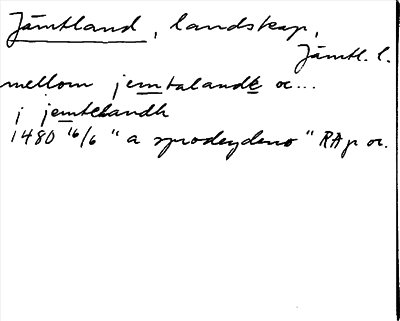 Jämtland, landskap,
Jämtl. l.
mellom jemtalande oc...
j jemtelandh
1480 16/6 "a sprodeydeno" RAp or.